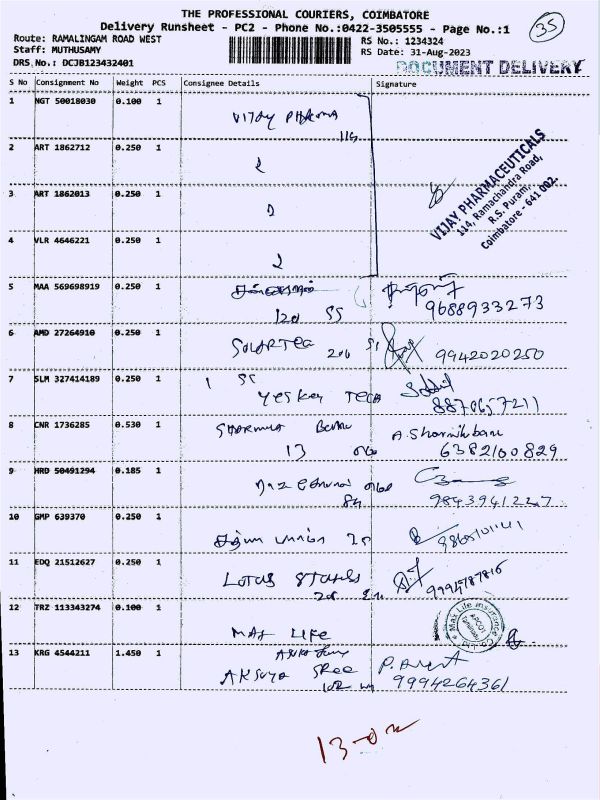 THE PROFESSIONAL COURIERS, COIMBATORE
Delivery Runsheet - PC2 - Phone No.:0422-3505555 - Page No.:1
35
Route: RAMALINGAM ROAD WEST
RS No.: 1234324
Staff: MUTHUSAMY
RS Date: 31-Aug-2023
DRS No.: DCJB123432401
DOCUMENT DELIVERY
S No Consignment No Weight PCS Consignee Details Signature
1 NGT 50018030 0.100 1 VIJAY PHARMA
114
2 ART 1862712 0.250 1
3 ART 1862013 0.250 1
VIJAY PHARMACEUTICALS
114, Ramachandra Road,
R.S. Puram,
Coimbatore - 641 002.
4 VLR 4646221 0.250 1
5 MAA 569698919 0.250 1
120 SS 9688933273
6 AMD 27264910 0.250 1 SOLARTEC 206 SI 9942020250
7 SLM 327414189 0.250 1 1 SS
YESKEY TECH 8870657211
8 CNR 1736285 0.530 1 SHARMILA BANU A. Sharmila banu
13 6382100829
9 HRD 50491294 0.185 1
84 9843941227
10 GMP 639370 0.250 1
11 EDQ 21512627 0.250 1 LOTUS
9994787816
12 TRZ 113343274 0.100 1 MAX LIFE
Max Life Insurance Co. Ltd.
13 KRG 4544211 1.450 1
AKSHYA SREE 9994264361
13-